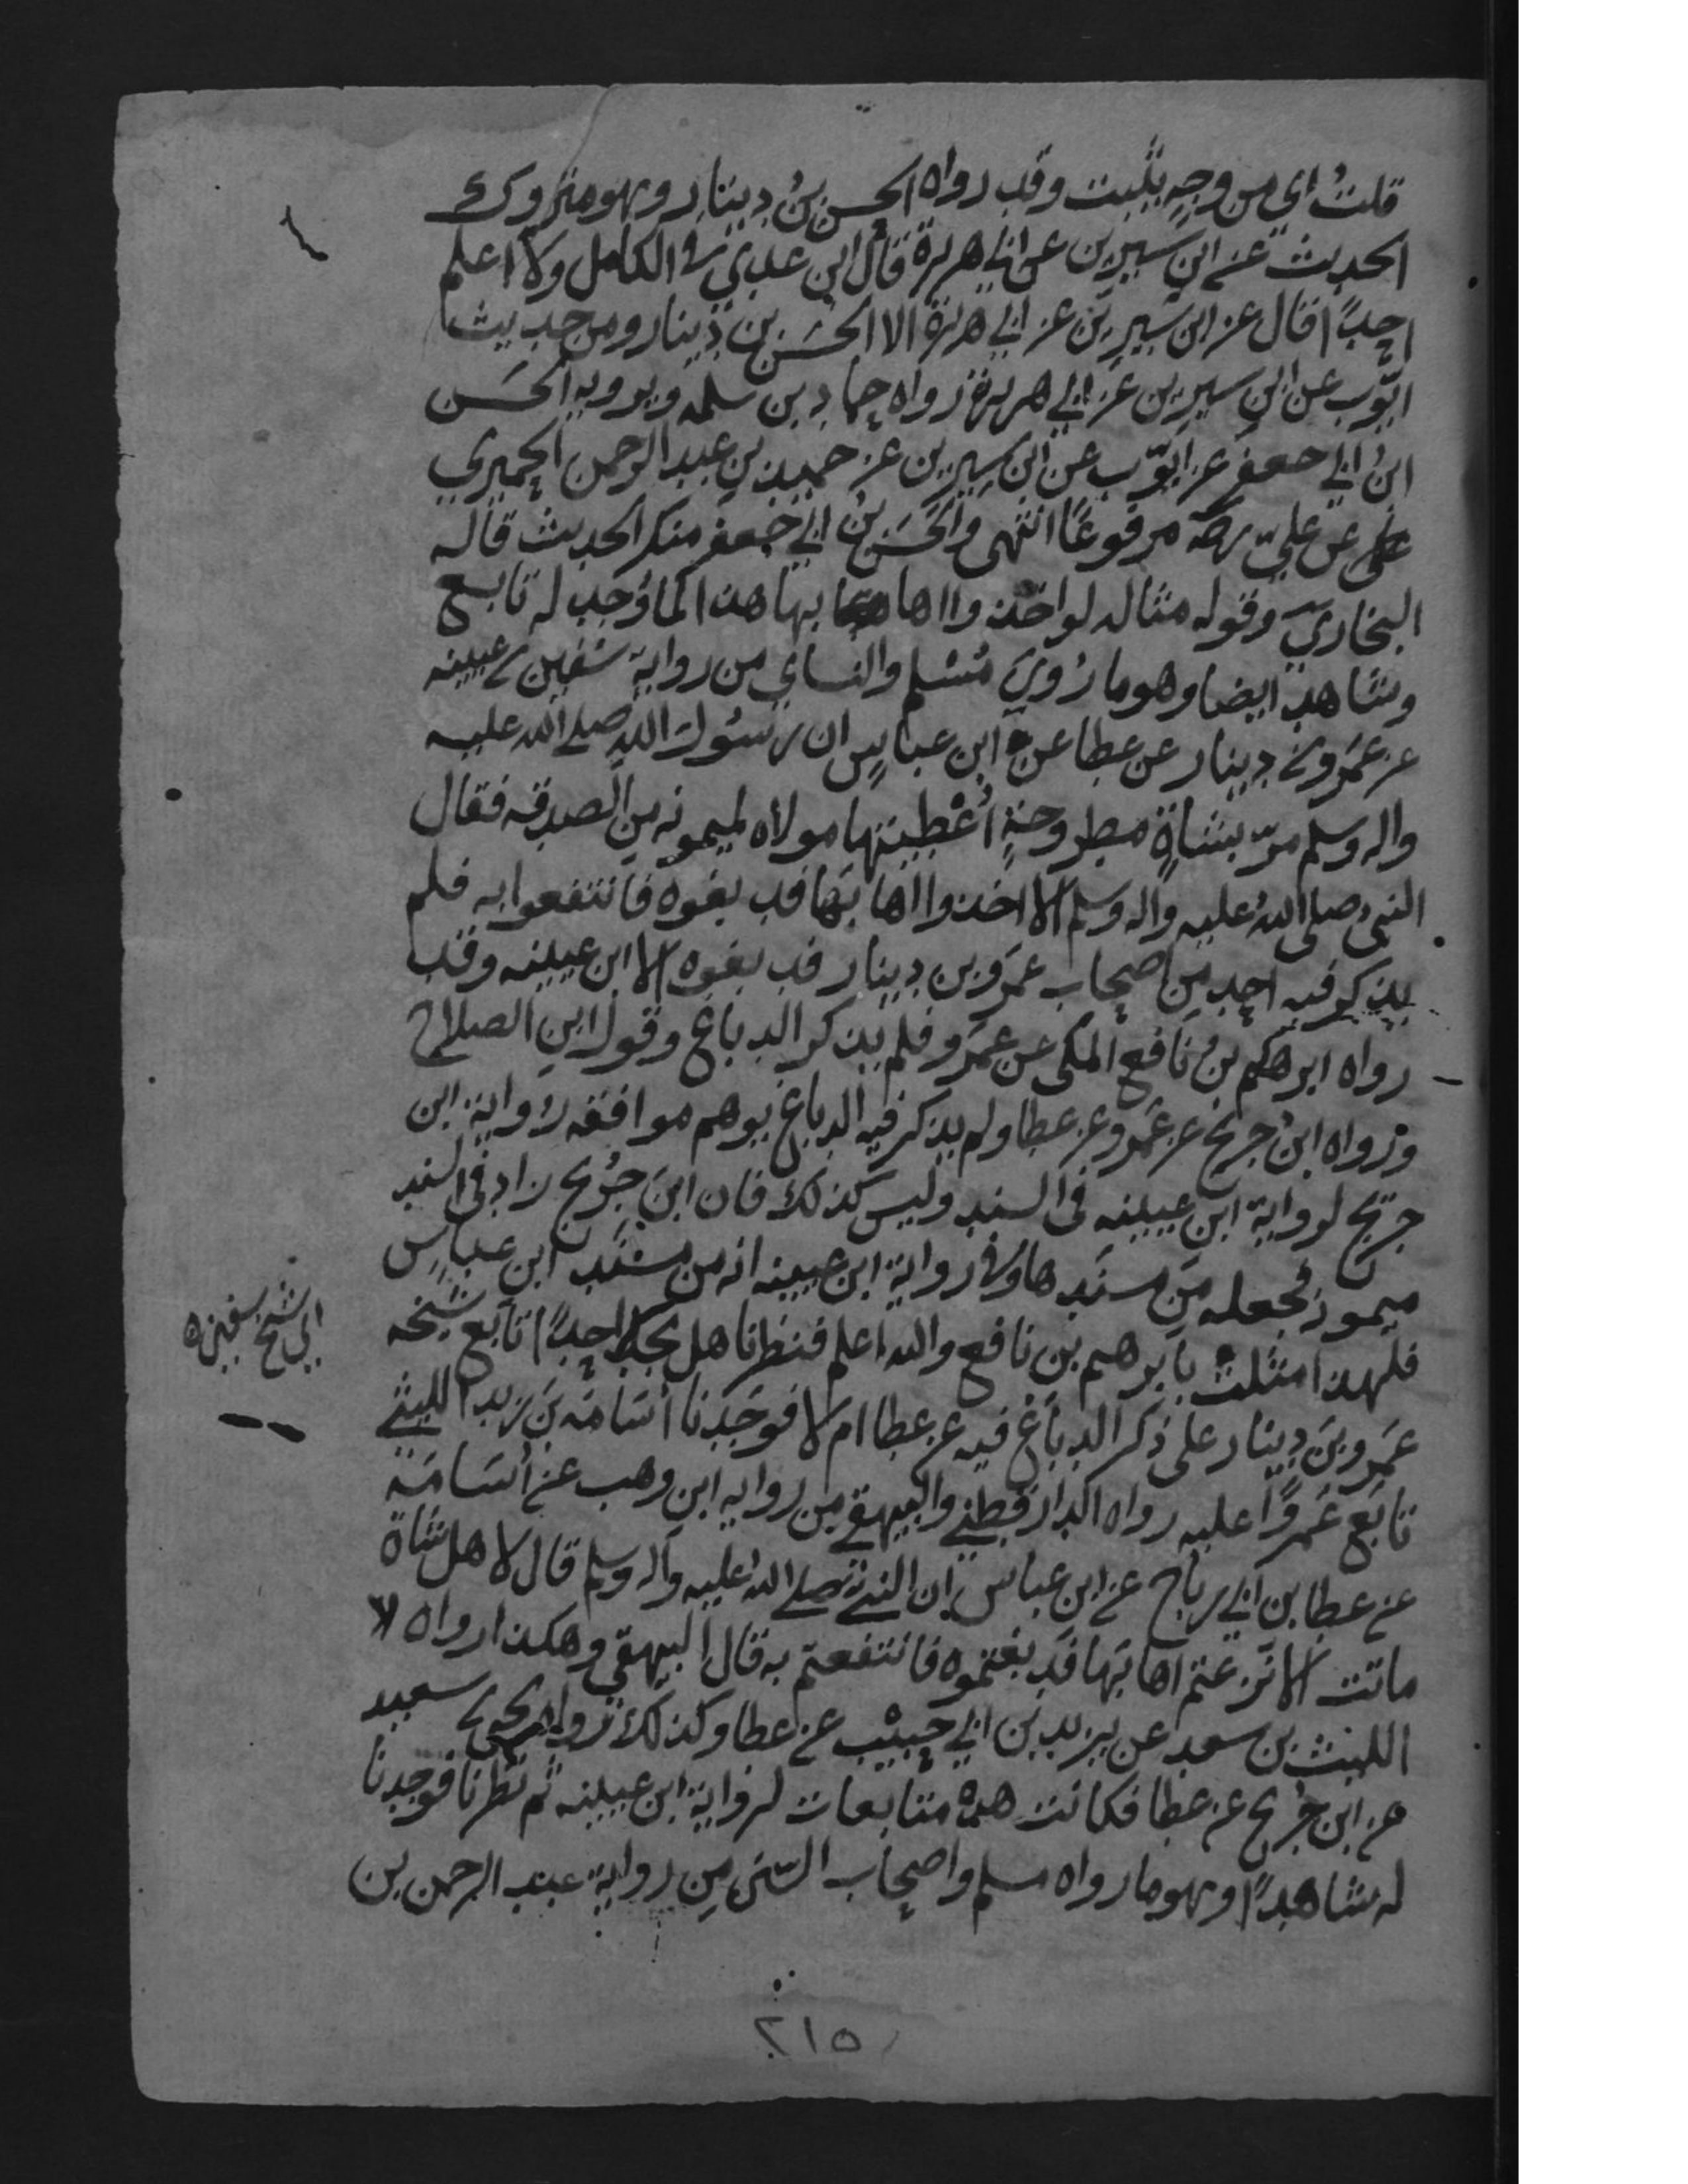 قلتُ اي من وجهٍ يثبت وقد رواه الحسن بنُ دينارٍ وهو متروك
الحديث عن ابن سيرين عن ابي هريرة قال ابن عدي في الكامل ولا اعلم
احدًا قال عن ابن سيرين عن ابي هريرة الا الحسن بن دينار ومن حديث
ايّوب عن ابن سيرين عن ابي هريرة رواه حماد بن سلمه ويرويه الحسَن
ابنُ ابي جعفر عن ايوّب عن ابن سيرين عن حميد بن عبد الرحمن الحميري
عن عليّ رضه مرفوعًا انتهى والحسَن بن ابي جعفر منكر الحديث قاله
البخاريّ وقوله مثاله لو اخذوا اهابها هذا لما وُجد له تابع
وشاهد ايضا وهو ما رُويَ مُسْلم والنساي من رواية سُفين بن عيينه
عن عَمرو بن دينار عن عطا عن ابن عباسٍ ان رسُول الله صلى الله عليه
واله وسلم مرّ بشاةٍ مطروحةٍ أُعْطِيتها مولاه لميمونه من الصدقه فقال
النبي صلى اللهُ عليه واله وسلم الا اخذوا اهابها فدبغوه فانتفعوا به فلم
يذكر فيه احد من اصحاب عمَرو بن دينار فدبغوه الا ابن عيينه وقد
رواه ابرهيم بنُ نافع المكي عن عمَرو فلم يذكر الدباغ وقول ابن الصلاح
ورواه ابنُ جريج عن عَمرو عن عطا ولم يذكر فيه الدباغ يوهم موافقه رواية ابن
جريج لرواية ابن عيينه في السند وليس كذلك فان ابنَ جُريج زاد في السند
ميمونه فجعله مِن مسنَدها وفي رواية ابن عيينه انه من مسنَد ابن عباسٍ
فلهذا مثلت بابرهيم بن نافع والله اعلم فنظرنا هل نجد احدًا تابَع شيخه
اي شيخ سفين ه
عَمرو بن دينار على ذكر الدباغ فيه عن عطا ام لا فوَجَدنا أسَامَة بن زيد الليثي
تابَع عَمروًا عليه رواه الدارقطني والبيهقي من روايه ابن وهب عن أسَامَة
عن عطا بن ابي رباح عن ابن عباس ان النبي صلى اللهُ عليه واله وسلم قال لاهل شاةٍ
ماتت الا نزعتم اهابها فدبغتموه فانتفعتم به قال البيهقي وهكذا رواه
الليث بن سعد عن يزيد بن ابي حبيب عن عطا وكذلك رواه يحيى بن سعيد
عن ابن جُريج عن عطا فكانت هذه متابعات لرواية ابن عيينه ثم نظرنا فوجدنا
له شاهدًا وهو ما رواه مسلم واصحاب السّنن من رواية عبد الرحمن بن
٢١٥